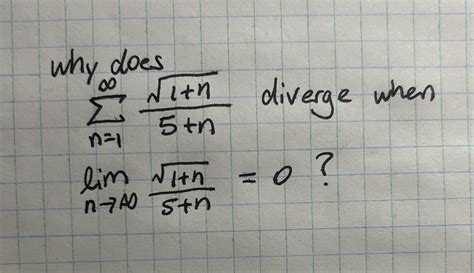 why does
∞
∑ √(1+n) / (5+n) diverge when
n=1
lim √(1+n) / (5+n) = 0 ?
n→∞